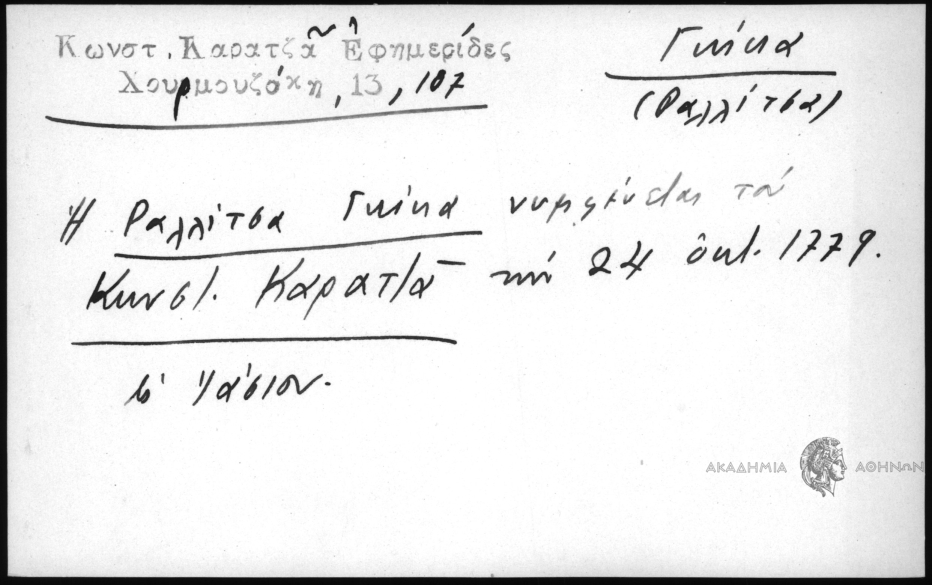 Κωνστ. Καρατζᾶ Ἐφημερίδες
Χουρμουζάκη, 13, 187
Γκίκα
(Ραλλίτσα)
Ἡ Ραλλίτσα Γκίκα νυμφεύεται τόν
Κωνστ. Καρατζᾶ τήν 24 ὀκτ. 1779.
Ἰάσιον.
ΑΚΑΔΗΜΙΑ ΑΘΗΝΩΝ